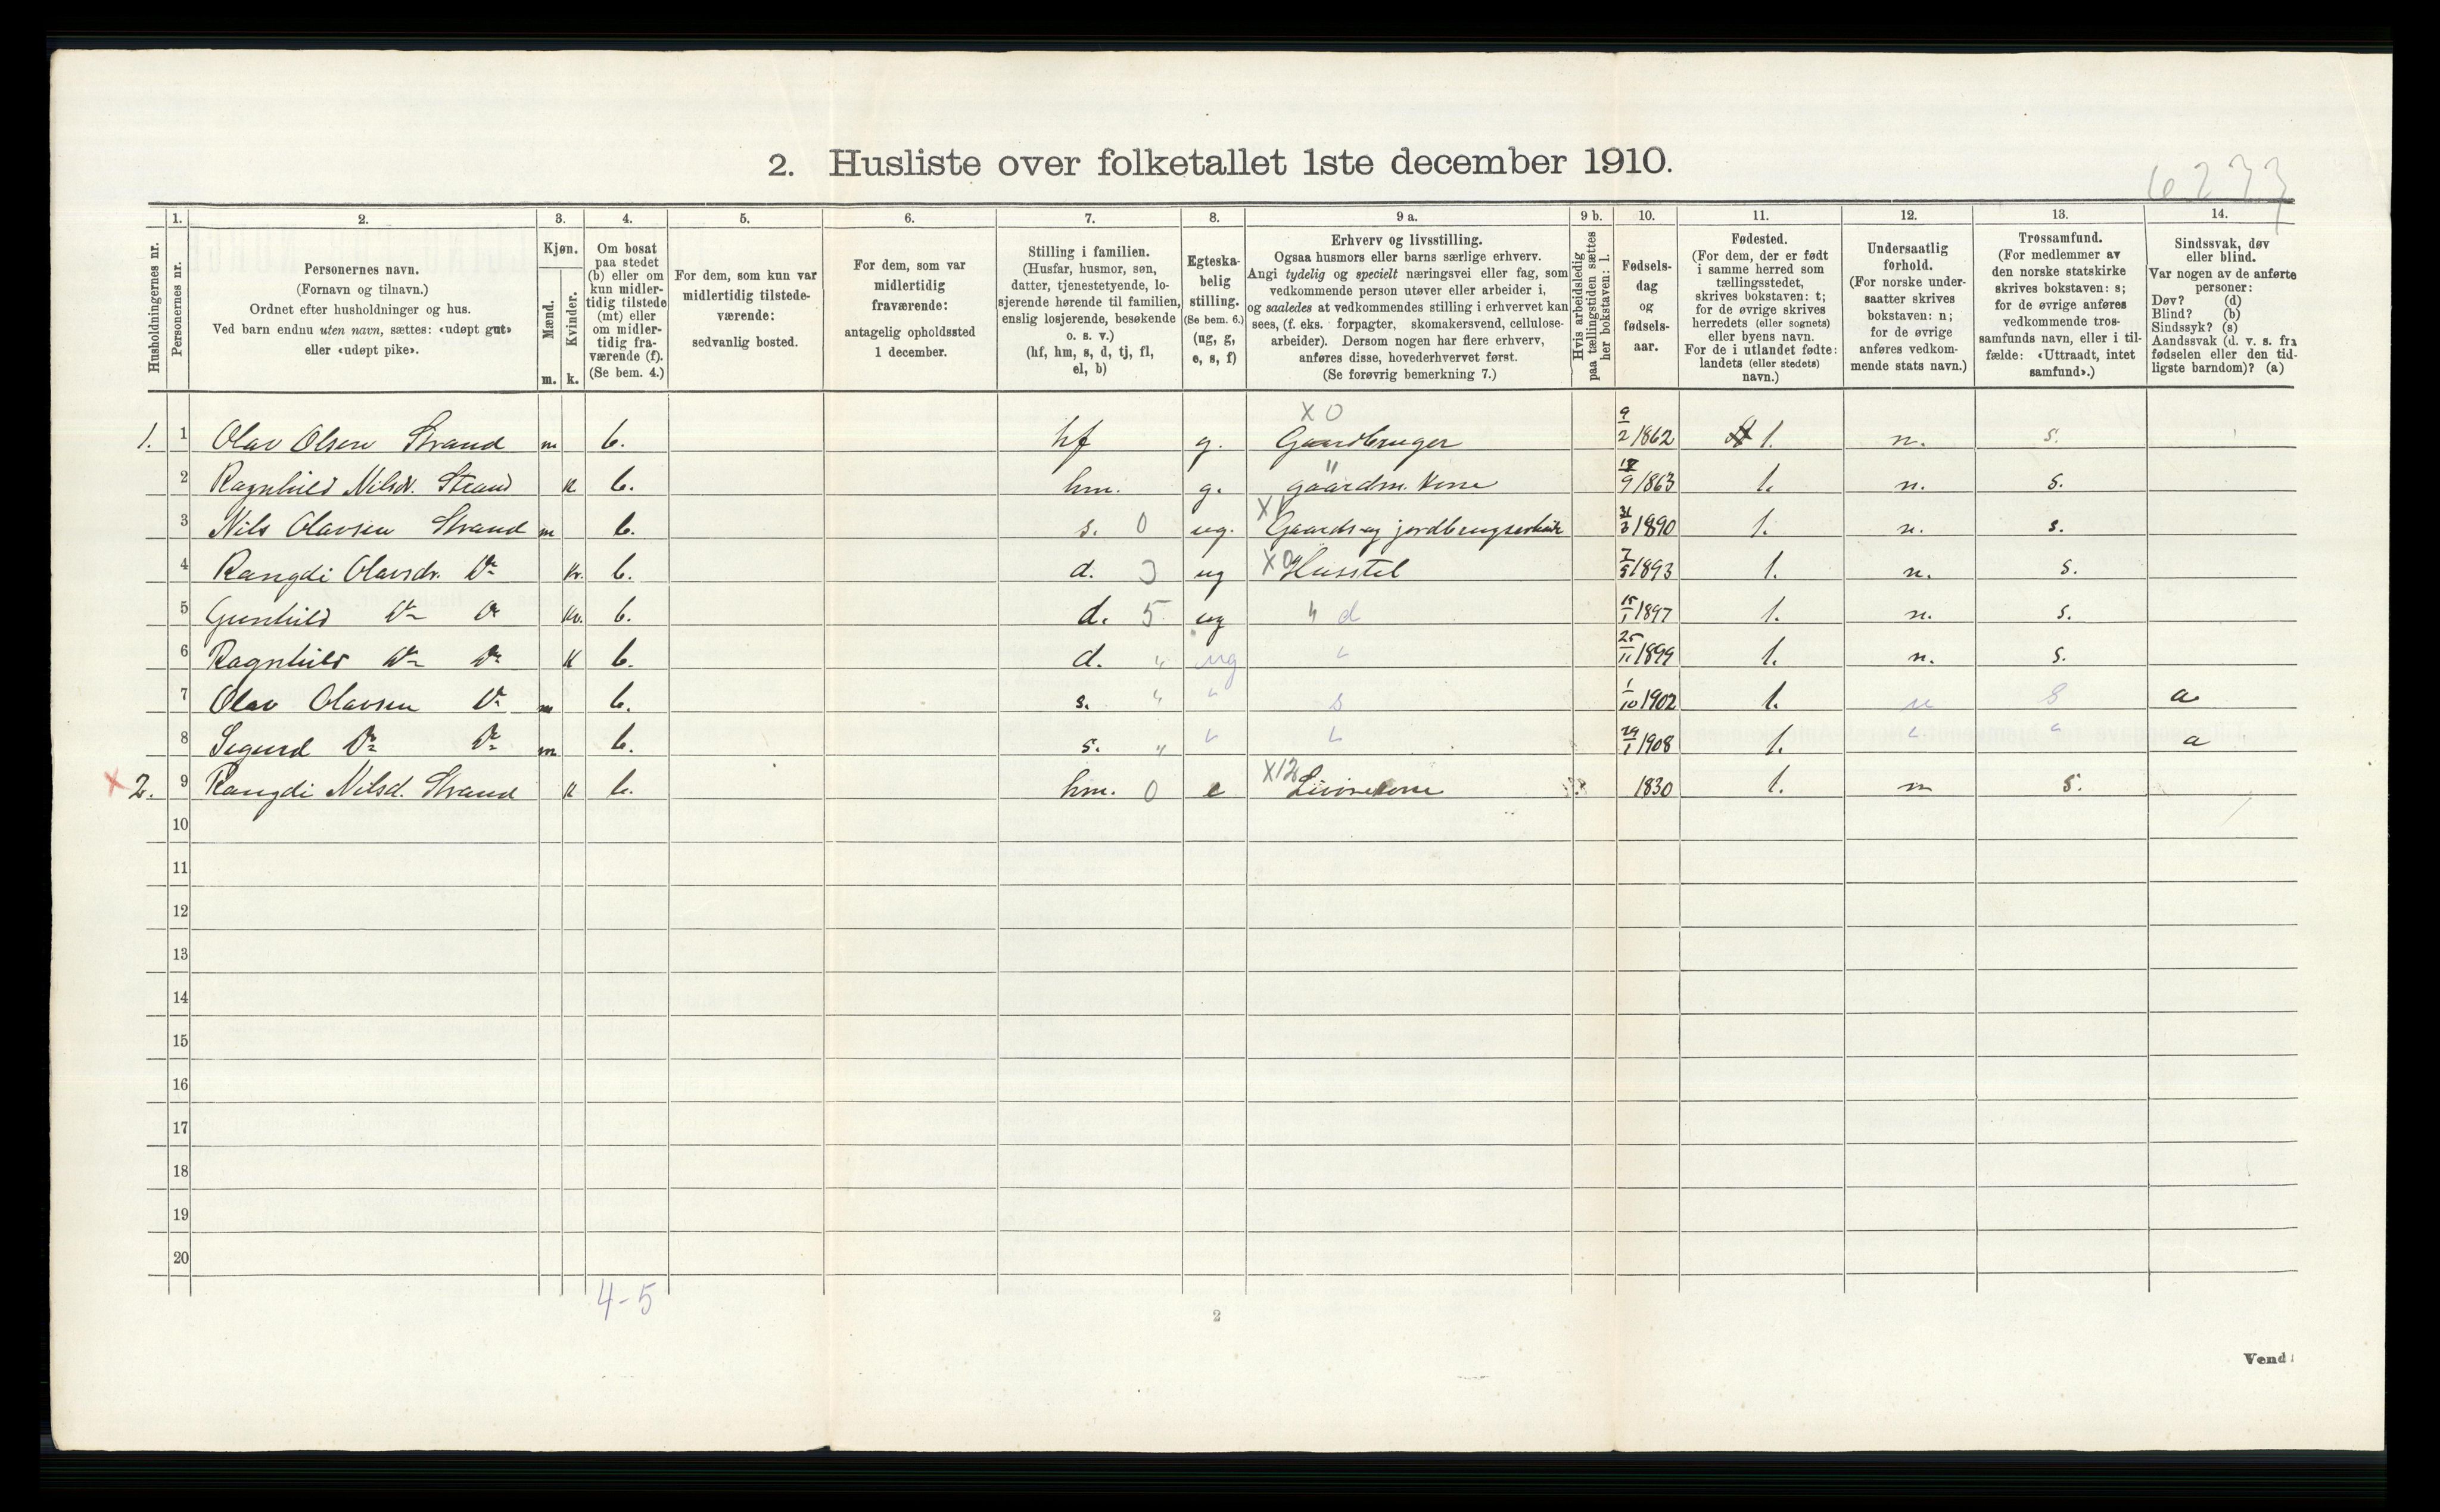 2. Husliste over folketallet 1ste december 1910.
Husholdningernes nr.
1.
Personernes nr.
2.
Personernes navn.
(Fornavn og tilnavn.)
Ordnet efter husholdninger og hus.
Ved barn endnu uten navn, sættes: «udøpt gut»
eller «udøpt pike».
3.
Kjøn.
Mænd.
Kvinder.
m. k.
4.
Om bosat
paa stedet
(b) eller om
kun midler-
tidig tilstede
(mt) eller
om midler-
tidig fra-
værende (f).
(Se bem. 4.)
5.
For dem, som kun var
midlertidig tilstede-
værende:
sedvanlig bosted.
6.
For dem, som var
midlertidig
fraværende:
antagelig opholdssted
1 december.
7.
Stilling i familien.
(Husfar, husmor, søn,
datter, tjenestetyende, lo-
sjerende hørende til familien,
enslig losjerende, besøkende
o. s. v.)
(hf, hm, s, d, tj, fl,
el, b)
8.
Egteska-
belig
stilling.
(Se bem. 6.)
(ug, g,
e, s, f)
9 a.
Erhverv og livsstilling.
Ogsaa husmors eller barns særlige erhverv.
Angi tydelig og specielt næringsvei eller fag, som
vedkommende person utøver eller arbeider i,
og saaledes at vedkommendes stilling i erhvervet kan
sees, (f. eks. forpagter, skomakersvend, cellulose-
arbeider). Dersom nogen har flere erhverv,
anføres disse, hovederhvervet først.
(Se forøvrig bemerkning 7.)
9 b.
Hvis arbeidsledig
paa tællingstiden sættes
her bokstaven: l.
10.
Fødsels-
dag
og
fødsels-
aar.
11.
Fødested.
(For dem, der er født
i samme herred som
tællingsstedet,
skrives bokstaven: t;
for de øvrige skrives
herredets (eller sognets)
eller byens navn.
For de i utlandet fødte:
landets (eller stedets)
navn.)
12.
Undersaatlig
forhold.
(For norske under-
saatter skrives
bokstaven: n;
for de øvrige
anføres vedkom-
mende stats navn.)
13.
Trossamfund.
(For medlemmer av
den norske statskirke
skrives bokstaven: s;
for de øvrige anføres
vedkommende tros-
samfunds navn, eller i til-
fælde: «Uttraadt, intet
samfund».)
14.
Sindssvak, døv
eller blind.
Var nogen av de anførte
personer:
Døv? (d)
Blind? (b)
Sindssyk? (s)
Aandssvak (d. v. s. fra
fødselen eller den tid-
ligste barndom)? (a)
X 0
1. 1 Olav Olsen Strand m b. hf g. Gaardbruger 9/2 1862 t. n. s.
2 Ragnhild Nilsdr. Strand k b. hm. g. " gaardm. Kone 9 1863 t. n. s.
3 Nils Olavsen Strand m b. s. 0 ug. X1 Gaards og jordbrugsarbeide 31/3 1890 t. n. s.
4 Rangdi Olavsdr. Do kv. b. d. ug X0 Husstel 7/5 1893 t. n. s.
5 Gunhild Do Do kv. b. d. 5 ug " d 15/1 1897 t. n. s.
6 Ragnhild Do Do k b. d. " ug " 25/11 1899 t. n. s.
7 Olav Olavsen Do m b. s. " " s 1/10 1902 t. n s a
8 Sigurd Do Do m b. s. " " " 29/1 1908 t. " " a
X 2. 9 Rangdi Nilsd. Strand k b. hm. 0 e X12 Livørekone 1830 t. n s.
10
11
12
13
14
15
16
17
18
19
20
4-5
2
Vend!